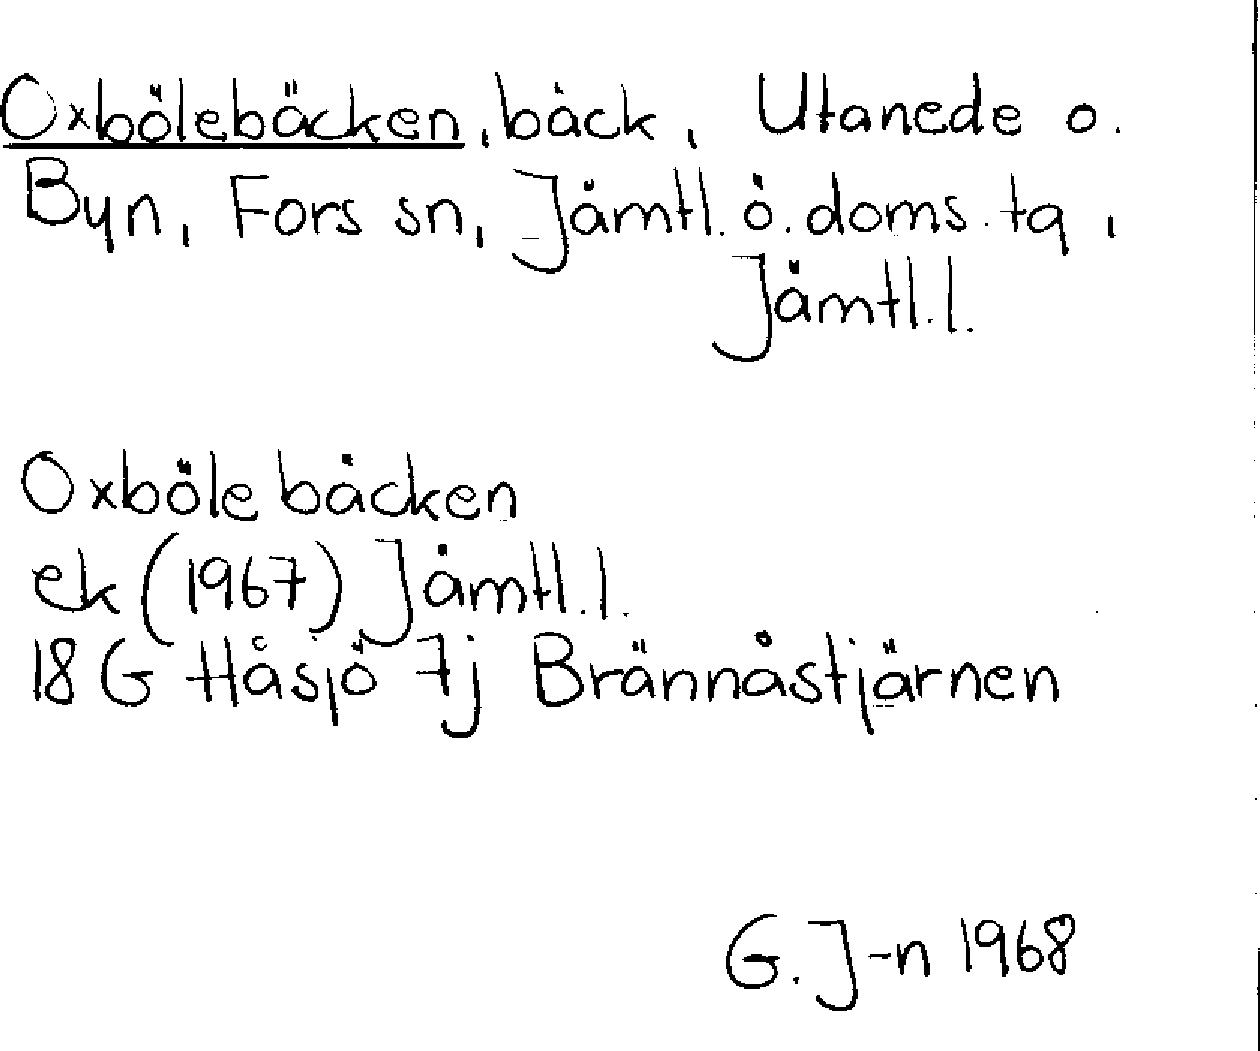 Oxbölebäcken, bäck, Utanede o.
Byn, Fors sn, Jämtl. ö. doms. tg,
Jämtl. l.
Oxbölebäcken
ek (1967) Jämtl. l.
18 G Håsjö 7j Brännåstjärnen
G. J-n 1968